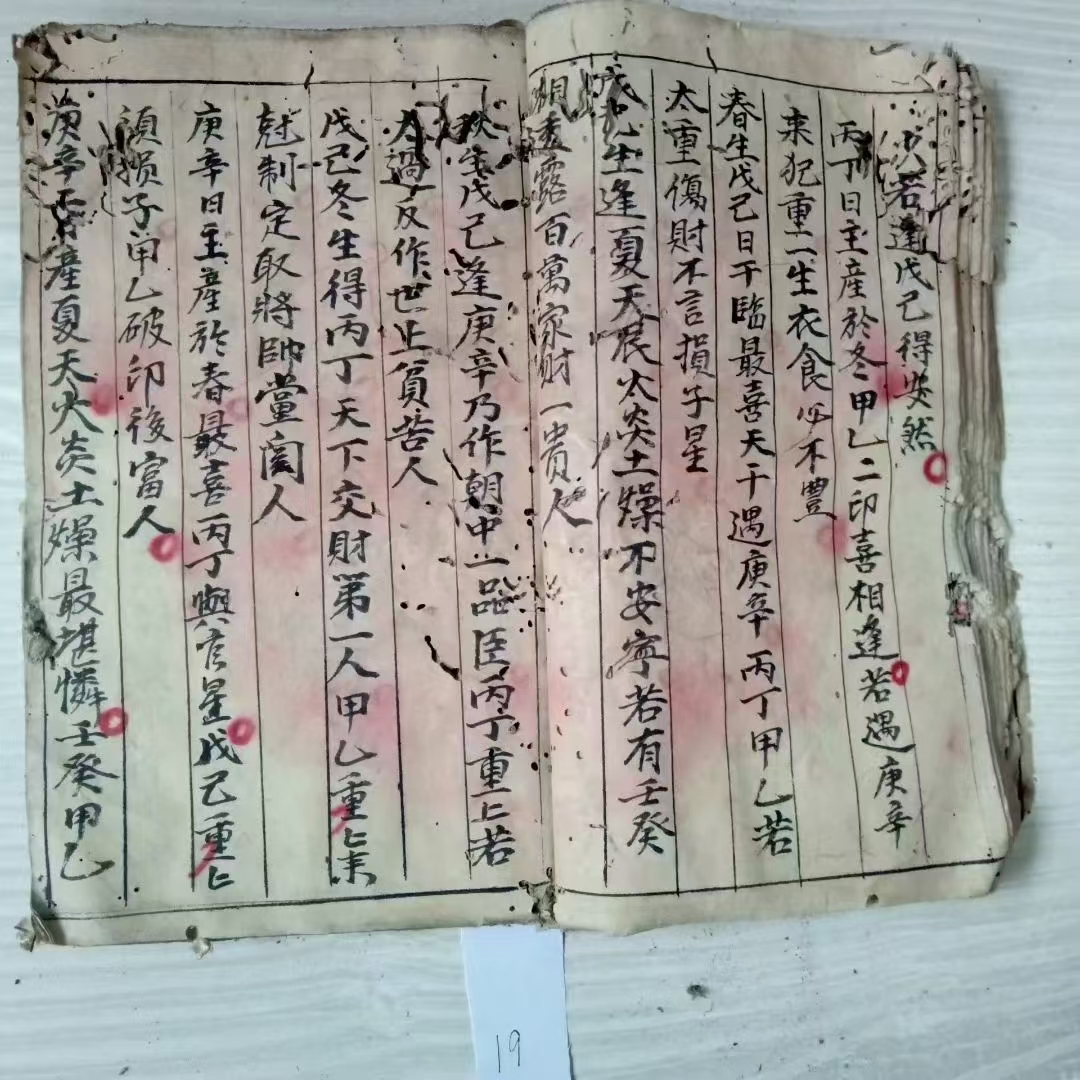 况若逢戊己得安然
丙丁日主產於冬甲乙二印喜相逢若遇庚辛
来犯重二生衣食必不豐
春生戊己日干臨最喜天干遇庚辛丙丁甲乙若
太重傷財不言損子星
戊己生逢夏天辰太炎土燥不安寧若有壬癸
相透露百萬家財一貴人
秋生戊己逢庚辛乃作朝中一品臣丙丁重上若
太過反作世上貧苦人
戊己冬生得丙丁天下交財第一人甲乙重上来
尅制定取將帥當閫人
庚辛日主產於春最喜丙丁與官星戊己重上
須損子甲乙破印後富人
庚辛日產夏天火炎土燥最堪憐壬癸甲乙
19